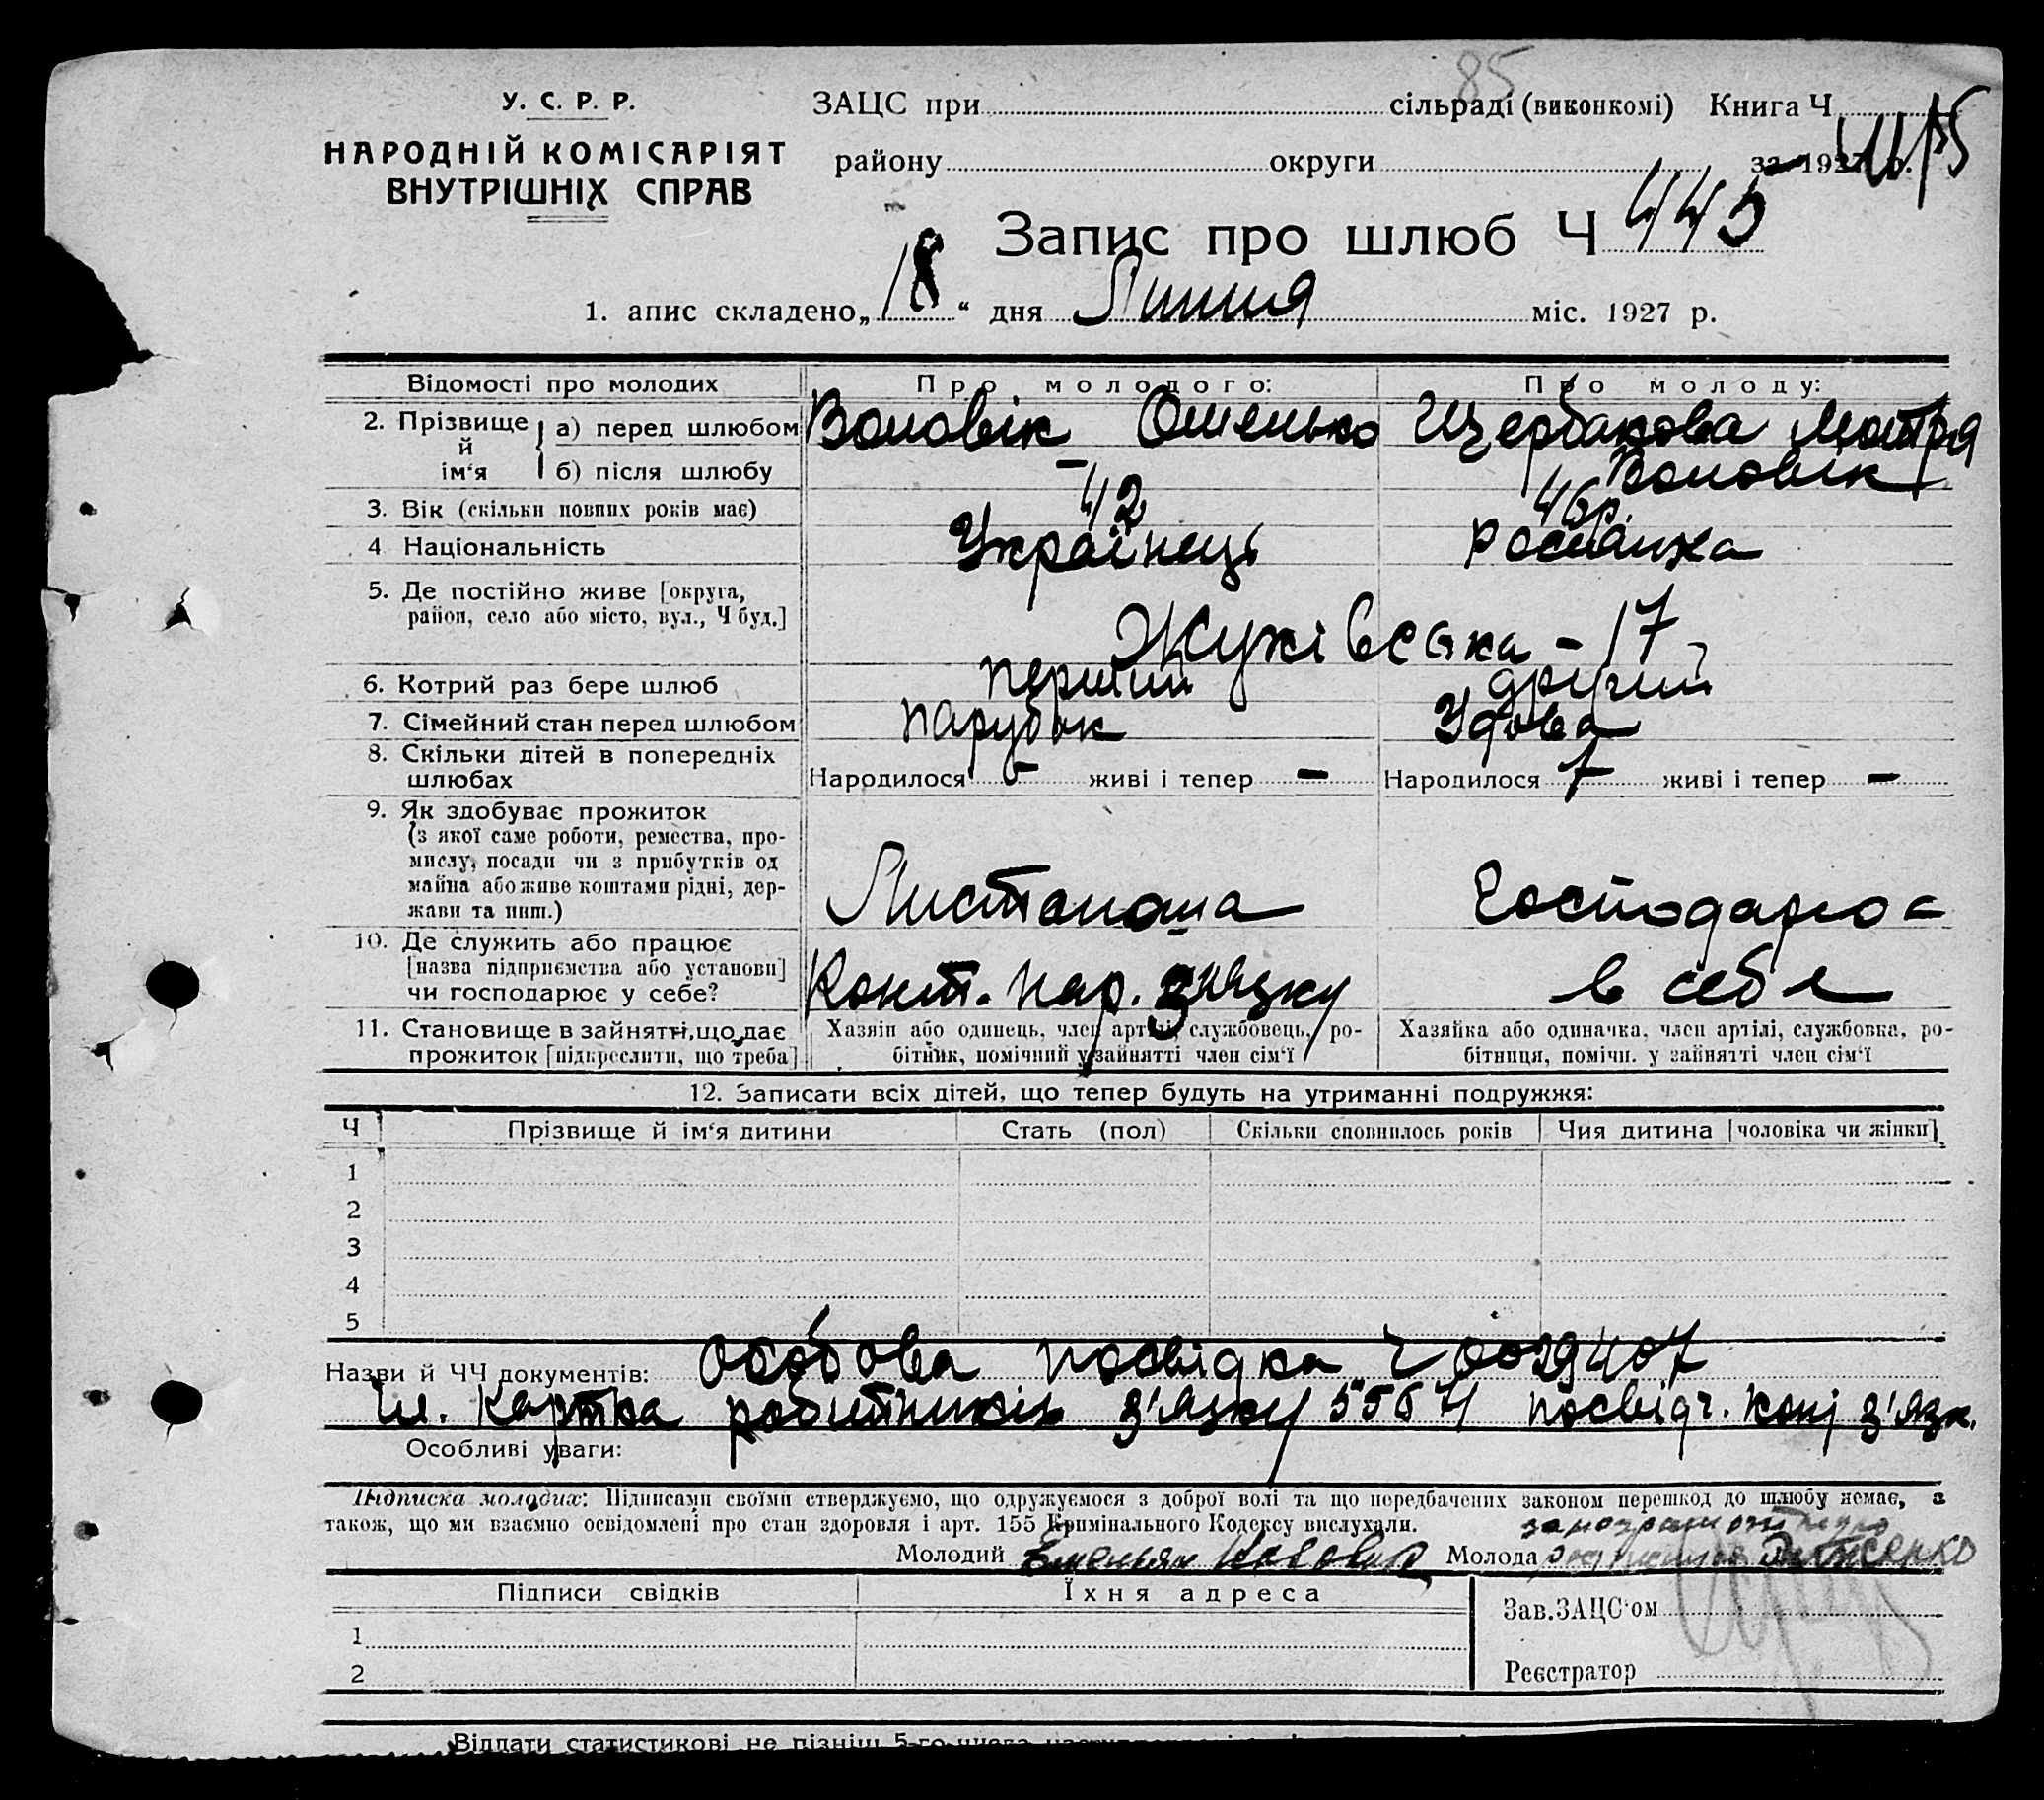 85
У. С. Р. Р.
НАРОДНІЙ КОМІСАРІЯТ
ВНУТРІШНІХ СПРАВ
ЗАЦС при сільраді (виконкомі) Книга Ч
району округи за 1927 р.
Запис про шлюб Ч 445
1. апис складено „18“ дня Липня міс. 1927 р.
Відомості про молодих Про молодого: Про молоду:
2. Прізвище й ім‘я
а) перед шлюбом Воловік Омелько Щербакова Мотря
б) після шлюбу — Воловік
3. Вік (скільки повних років має) 42 46 р.
4 Національність Українець Росіянка
5. Де постійно живе [округа,
район, село або місто, вул., Ч буд.]
Жуківська - 17
6. Котрий раз бере шлюб перший другий
7. Сімейний стан перед шлюбом парубок Удова
8. Скільки дітей в попередніх
шлюбах
Народилося — живі і тепер — Народилося 7 живі і тепер —
9. Як здобуває прожиток
(з якої саме роботи, ремества, про-
мислу, посади чи з прибутків од
майна або живе коштами рідні, дер-
жави та инш.)
Листоноша Господарю =
10. Де служить або працює
[назва підприємства або установи]
чи господарює у себе?
Конт. нар. Зв'язку в себе
11. Становище в зайнятті, що дає
прожиток [підкреслити, що треба]
Хазяїн або одинець, член артілі, службовець, ро-
бітник, помічний у зайнятті член сім‘ї
Хазяйка або одиначка, член артілі, службовка, ро-
бітниця, помічн. у зайнятті член сім‘ї
12. Записати всіх дітей, що тепер будуть на утриманні подружжя:
Ч Прізвище й ім‘я дитини Стать (пол) Скільки сповнилось років Чия дитина [чоловіка чи жінки]
1
2
3
4
5
Назви й ЧЧ документів: Особова посвідка Ч 0029407
чл. Картка робітників з'язку 5567 посвідч. кон з'язк.
Особливі уваги:
Підписка молодих: Підписами своїми стверджуємо, що одружуємося з доброї волі та що передбачених законом перешкод до шлюбу немає, а
також, що ми взаємно освідомлені про стан здоровля і арт. 155 Кримінального Кодексу вислухали.
Молодий Молода
Підписи свідків Їхня адреса
1
2
Зав.ЗАЦС‘ом
Реєстратор
Віддати статистикові не пізніш 5-го числа